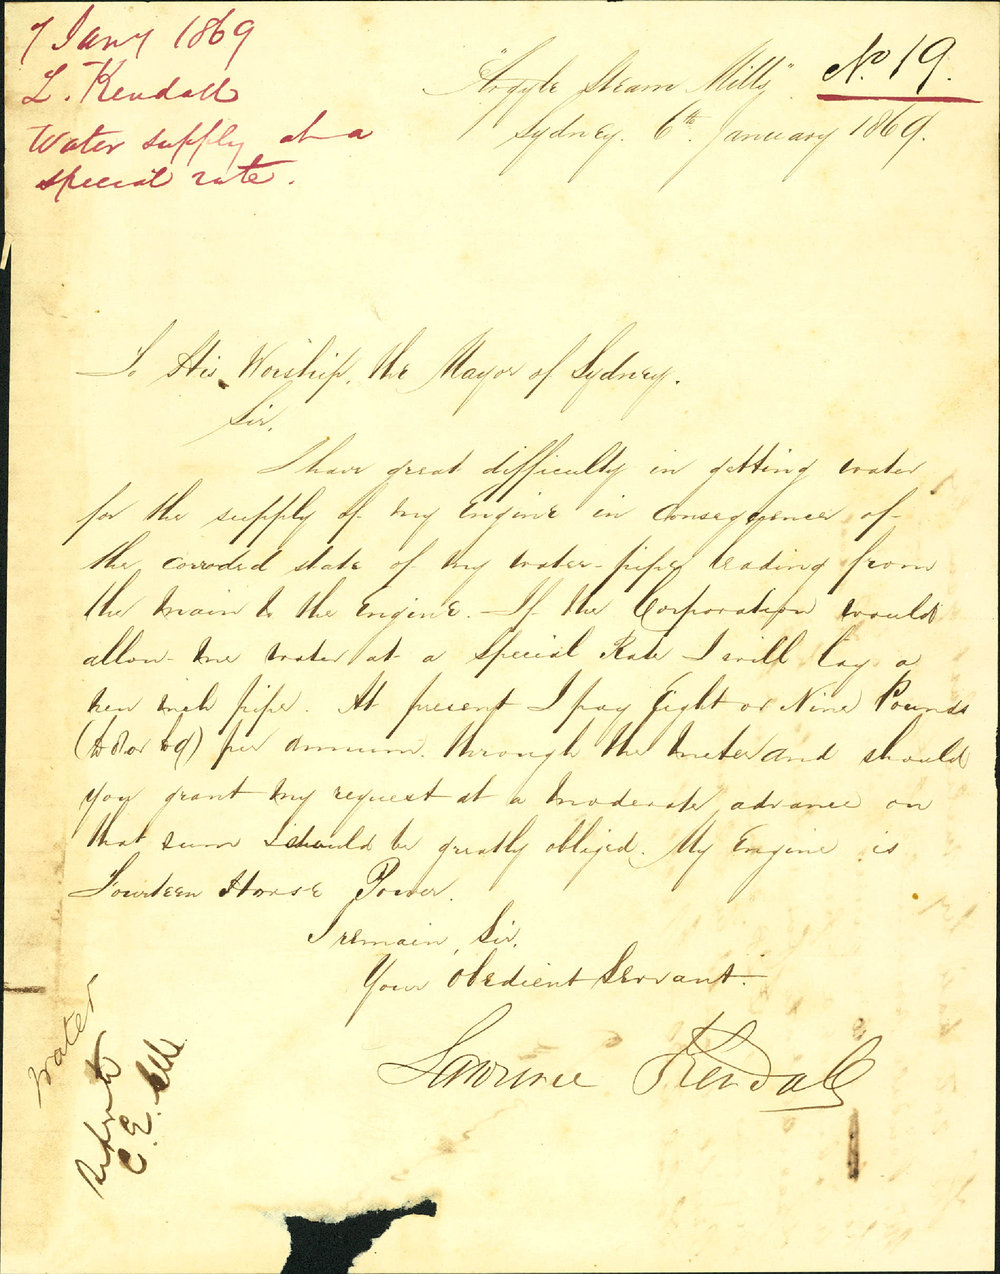 7 Jany 1869
L. Kendall
Water supply at a
special rate.
No. 19.
"Argyle Steam Mills"
Sydney. 6th. January 1869.
To His Worship, the Mayor of Sydney.
Sir,
I have great difficulty in getting water
for the supply of my Engine in consequence of
the corroded state of my water-pipe leading from
the main to the Engine. - If the Corporation would
allow me water at a Special Rate I will lay a
new inch pipe. At present I pay Eight or Nine Pounds
(£8 or £9) per annum through the meter and should
you grant my request at a moderate advance on
that sum I should be greatly obliged. My Engine is
Fourteen Horse Power.
I remain, Sir,
Your Obedient Servant.
Lawrence Kendall
Water
Refer to
C. E.